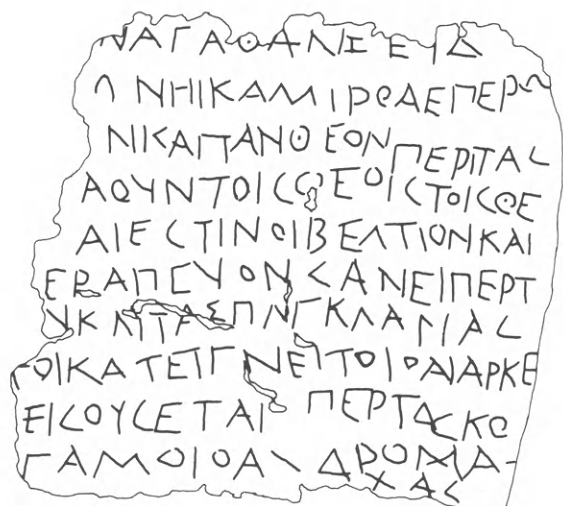 ΝΑΓΑΘΑΝΙΕΕΙΔ
ΝΗΙΚΑΜΙΡΘΑΕΠΕΡ
ΝΙΚΑΠΑΝΘΕΟΝΠΕΡΙΤΑC
ΑΘΥΝΤΟΙCΘΕΟΙCΤΟΙCΘΕ
ΑΙΕCΤΙΝΟΙΒΕΛΤΙΟΝΚΑΙ
ΕΡΑΠΕΥΟΝCΑΝΕΙΠΕΡΤ
ΥΚΛΙΤΑΣΠΑΓΚΛΑΡΙΑC
ΓΟΙΚΑΤΕΙΓΝΕΙΤΟΙΟΑΙΑΡΚΕ
ΕΙCΟΥCΕΤΑΙ ΠΕΡΤΑCΚΟ
ΓΑΜΟΙΟΑ ΔΡΟΜΑ
ΧΑC